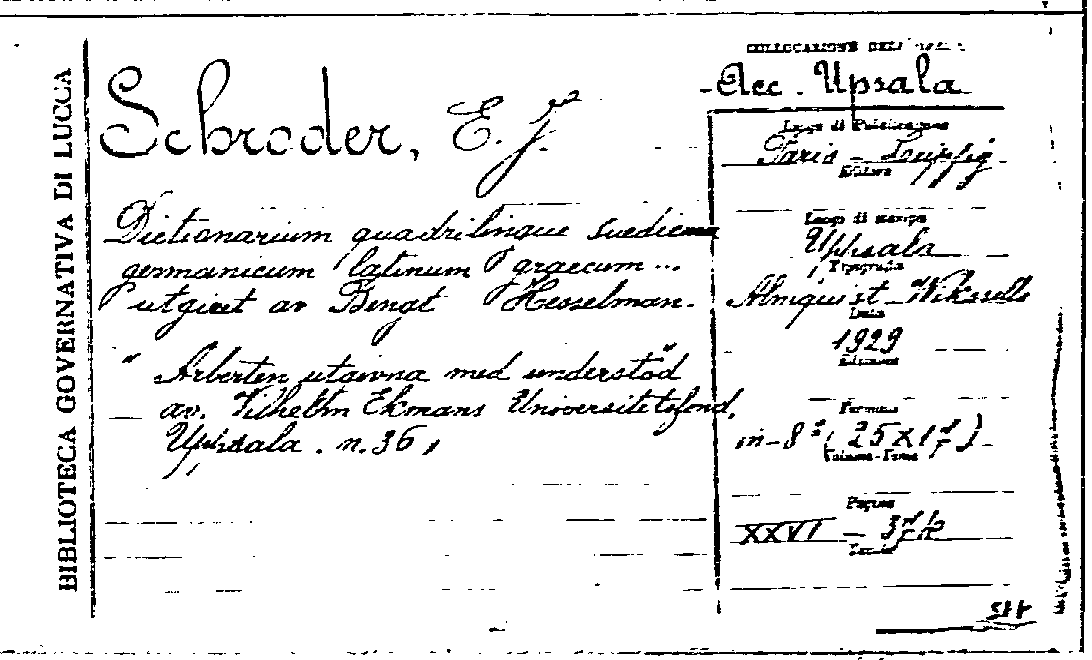 BIBLIOTECA GOVERNATIVA DI LUCCA
COLLOCAZIONE DELL'OPERA
Acc. Upsala
Schroder, E. J.
Dictionarium quadrilingue suedicum
germanicum latinum graecum...
utgivet av Bengt Hesselman.
" Arberten utgivna med understöd "
av. Vilhelm Ekmans Universitetsfond,
Uppsala. n. 36,
Luogo di Pubblicazione
Paris - Leipzig
Editore
Luogo di stampa
Uppsala
Tipografia
Almquist - Wiksells
Data
1929
Edizione
Formato
in-8° (25x17)
Volume-Tomo
Pagine
XXVI -